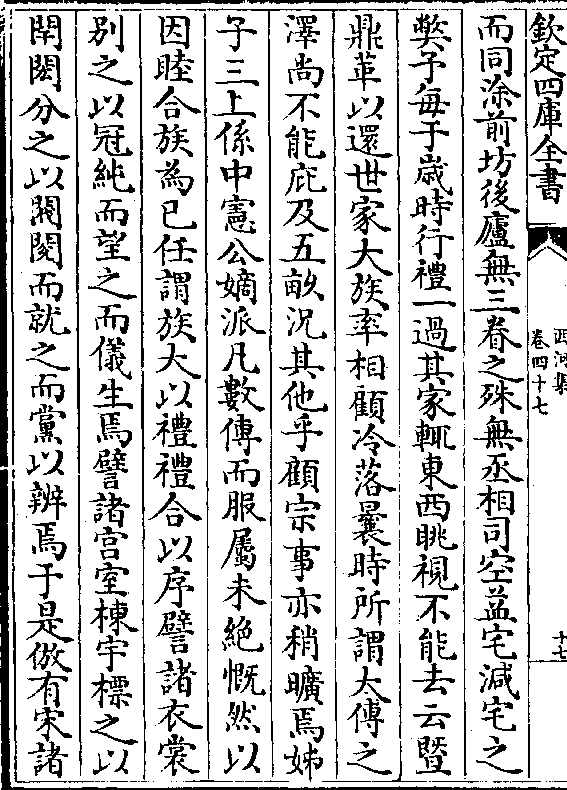 欽定四庫全書
西河集
卷四十七
十七
而同涂前坊後廬無三眷之殊無丞相司空益宅減宅之
獘予每于歲時行禮一過其家輒東西眺視不能去云暨
鼎革以還世家大族率相顧冷落曩時所謂太傅之
澤尚不能庇及五畝況其他乎顧宗事亦稍曠焉姊
子三上係中憲公嫡派凡數傳而服屬未絶慨然以
因睦合族為已任謂族大以禮禮合以序譬諸衣裳
别之以冠純而望之而儀生焉譬諸宫室棟宇標之以
閈閎分之以閥閱而就之而黨以辨焉于是倣有宋諸